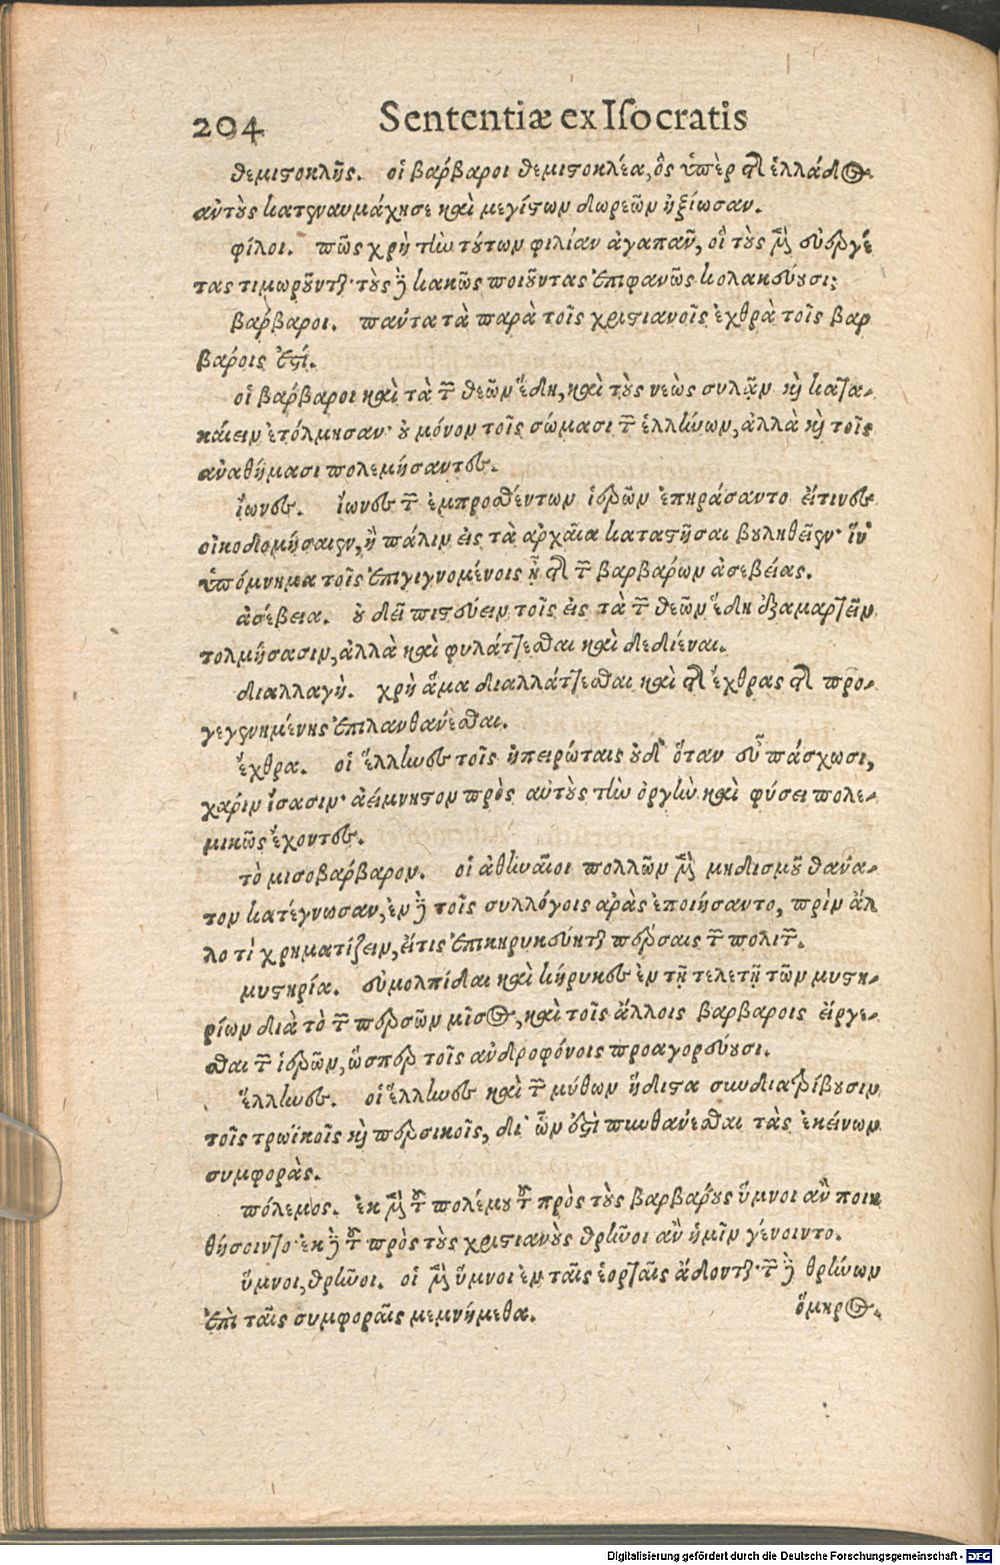 204 Sententiæ ex Iſocratis
θεμιστοκλῆς. οἱ βάρβαροι θεμιστοκλέα, ὃς ὑπὲρ τῆς ἑλλάδος
αὐτοὺς κατεναυμάχησε καὶ μεγίστων δωρεῶν ἠξίωσαν.
φίλοι. πῶς χρὴ τὴν τούτων φιλίαν ἀγαπᾶν, οἳ τοὺς μὲν εὐεργέ
τας τιμωροῦνται· τοὺς δὲ κακῶς ποιοῦντας ἐπιφανῶς κολακεύουσι;
βάρβαροι. πάντα τὰ παρὰ τοῖς χριστιανοῖς ἐχθρὰ τοῖς βαρ
βάροις ἐστί.
οἱ βάρβαροι καὶ τὰ τῶν θεῶν ἕδη, καὶ τοὺς νεὼς συλᾶν καὶ κατα-
κάειν ἐτόλμησαν· οὐ μόνον τοῖς σώμασι τῶν ἑλλήνων, ἀλλὰ καὶ τοῖς
ἀναθήμασι πολεμήσαντες.
ἴωνες. ἴωνες τῶν ἐμπρησθέντων ἱερῶν ἐπηράσαντο εἴτινες
οἰκοδομήσαιεν, ἢ πάλιν εἰς τὰ ἀρχαῖα καταστῆσαι βουληθεῖεν· ἵν'
ὑπόμνημα τοῖς ἐπιγιγνομένοις ᾖ τῆς τῶν βαρβάρων ἀσεβείας.
ἀσέβεια. οὐ δεῖ πιστεύειν τοῖς εἰς τὰ τῶν θεῶν ἕδη ἐξαμαρτεῖν
τολμήσασιν, ἀλλὰ καὶ φυλάττεσθαι καὶ δεδιέναι.
διαλλαγὴ. χρὴ ἅμα διαλλάττεσθαι καὶ τῆς ἔχθρας τῆς προ-
γεγενημένης ἐπιλανθάνεσθαι.
ἔχθρα. οἱ ἕλληνες τοῖς ἠπειρώταις οὐδ' ὅταν εὖ πάσχωσι,
χάριν ἴσασιν· ἀείμνηστον πρὸς αὐτοὺς τὴν ὀργὴν καὶ φύσει πολε-
μικῶς ἔχοντες.
τὸ μισοβάρβαρον. οἱ ἀθηναῖοι πολλῶν μὲν μηδισμοῦ θάνα-
τον κατέγνωσαν, ἐν δὲ τοῖς συλλόγοις ἀρὰς ἐποιήσαντο, πρὶν ἄλ
λο τὶ χρηματίζειν, εἴτις ἐπικηρυκεύηται πέρσαις τῶν πολιτῶν.
μυστηρία. εὐμολπίδαι καὶ κήρυκες ἐν τῇ τελετῇ τῶν μυστη-
ρίων διὰ τὸ τῶν περσῶν μῖσος, καὶ τοῖς ἄλλοις βαρβάροις εἴργε-
σθαι τῶν ἱερῶν, ὥσπερ τοῖς ἀνδροφόνοις προαγορεύουσι.
ἕλληνες. οἱ ἕλληνες καὶ τῶν μύθων ἥδιστα συνδιατρίβουσιν
τοῖς τρωϊκοῖς καὶ περσικοῖς, δι' ὧν ἐστὶ πυνθάνεσθαι τὰς ἐκείνων
συμφοράς.
πόλεμος. ἐκ μὲν τοῦ πολέμου τοῦ πρὸς τοὺς βαρβάρους ὕμνοι ἂν ποιη
θήσοιντο· ἐκ δὲ τοῦ πρὸς τοὺς χριστιανοὺς θρῆνοι ἂν ἡμῖν γένοιντο.
ὕμνοι, θρῆνοι. οἱ μὲν ὕμνοι ἐν ταῖς ἑορταῖς ᾄδονται· τῶν δὲ θρήνων
ἐπὶ ταῖς συμφοραῖς μεμνήμεθα. ὅμηρος.
Digitalisierung gefördert durch die Deutsche Forschungsgemeinschaft - DFG